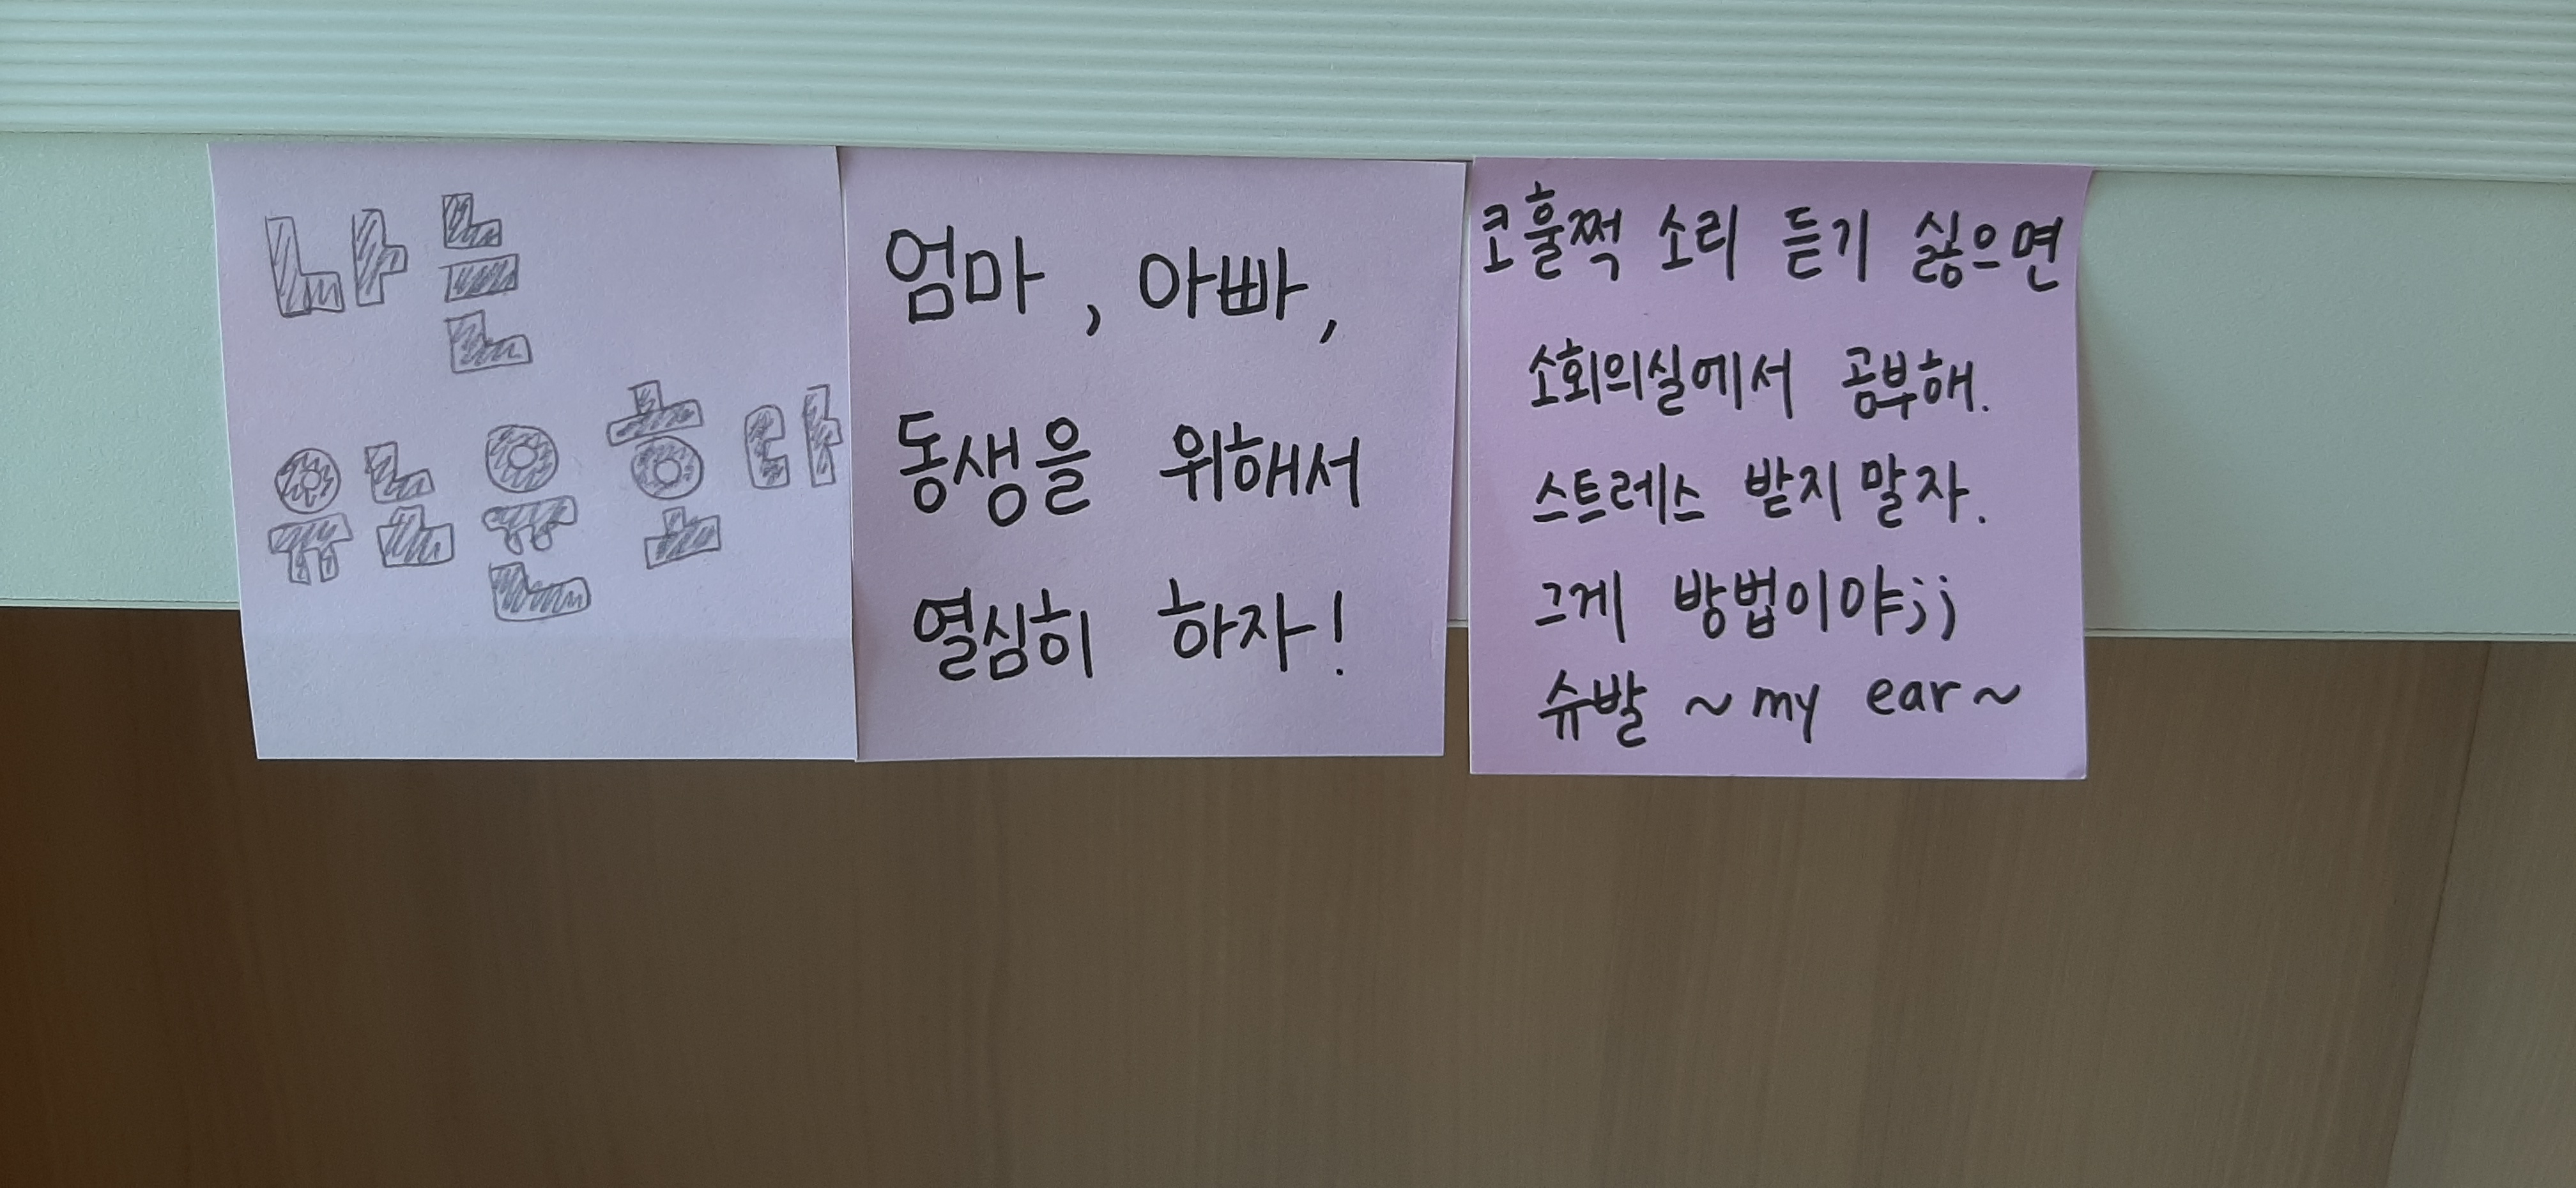 나는
유노윤호다
엄마, 아빠,
동생을 위해서
열심히 하자!
코훌쩍 소리 듣기 싫으면
소회의실에서 공부해.
스트레스 받지 말자.
그게 방법이야;;
슈발 ~my ear~